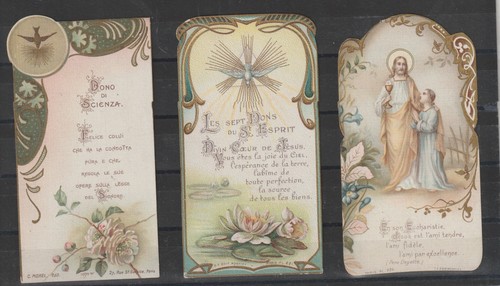 DONO DI
SCIENZA.
FELICE COLUI
CHE HA LA CONDOTTA
REGOLA LE SUE
OPERE SULLA LEGGE
DEL SIGNORE.
LES SEPT DONS
DU ST. ESPRIT
DIVIN CŒUR DE JESUS.
Vous êtes la joie du CIEL.
l'espérance de la terre,
l'abîme de
toute perfection,
la source
de tous les biens.
En son Eucharistie,
Jésus est l'ami tendre,
l'ami fidèle,
l'ami par excellence.